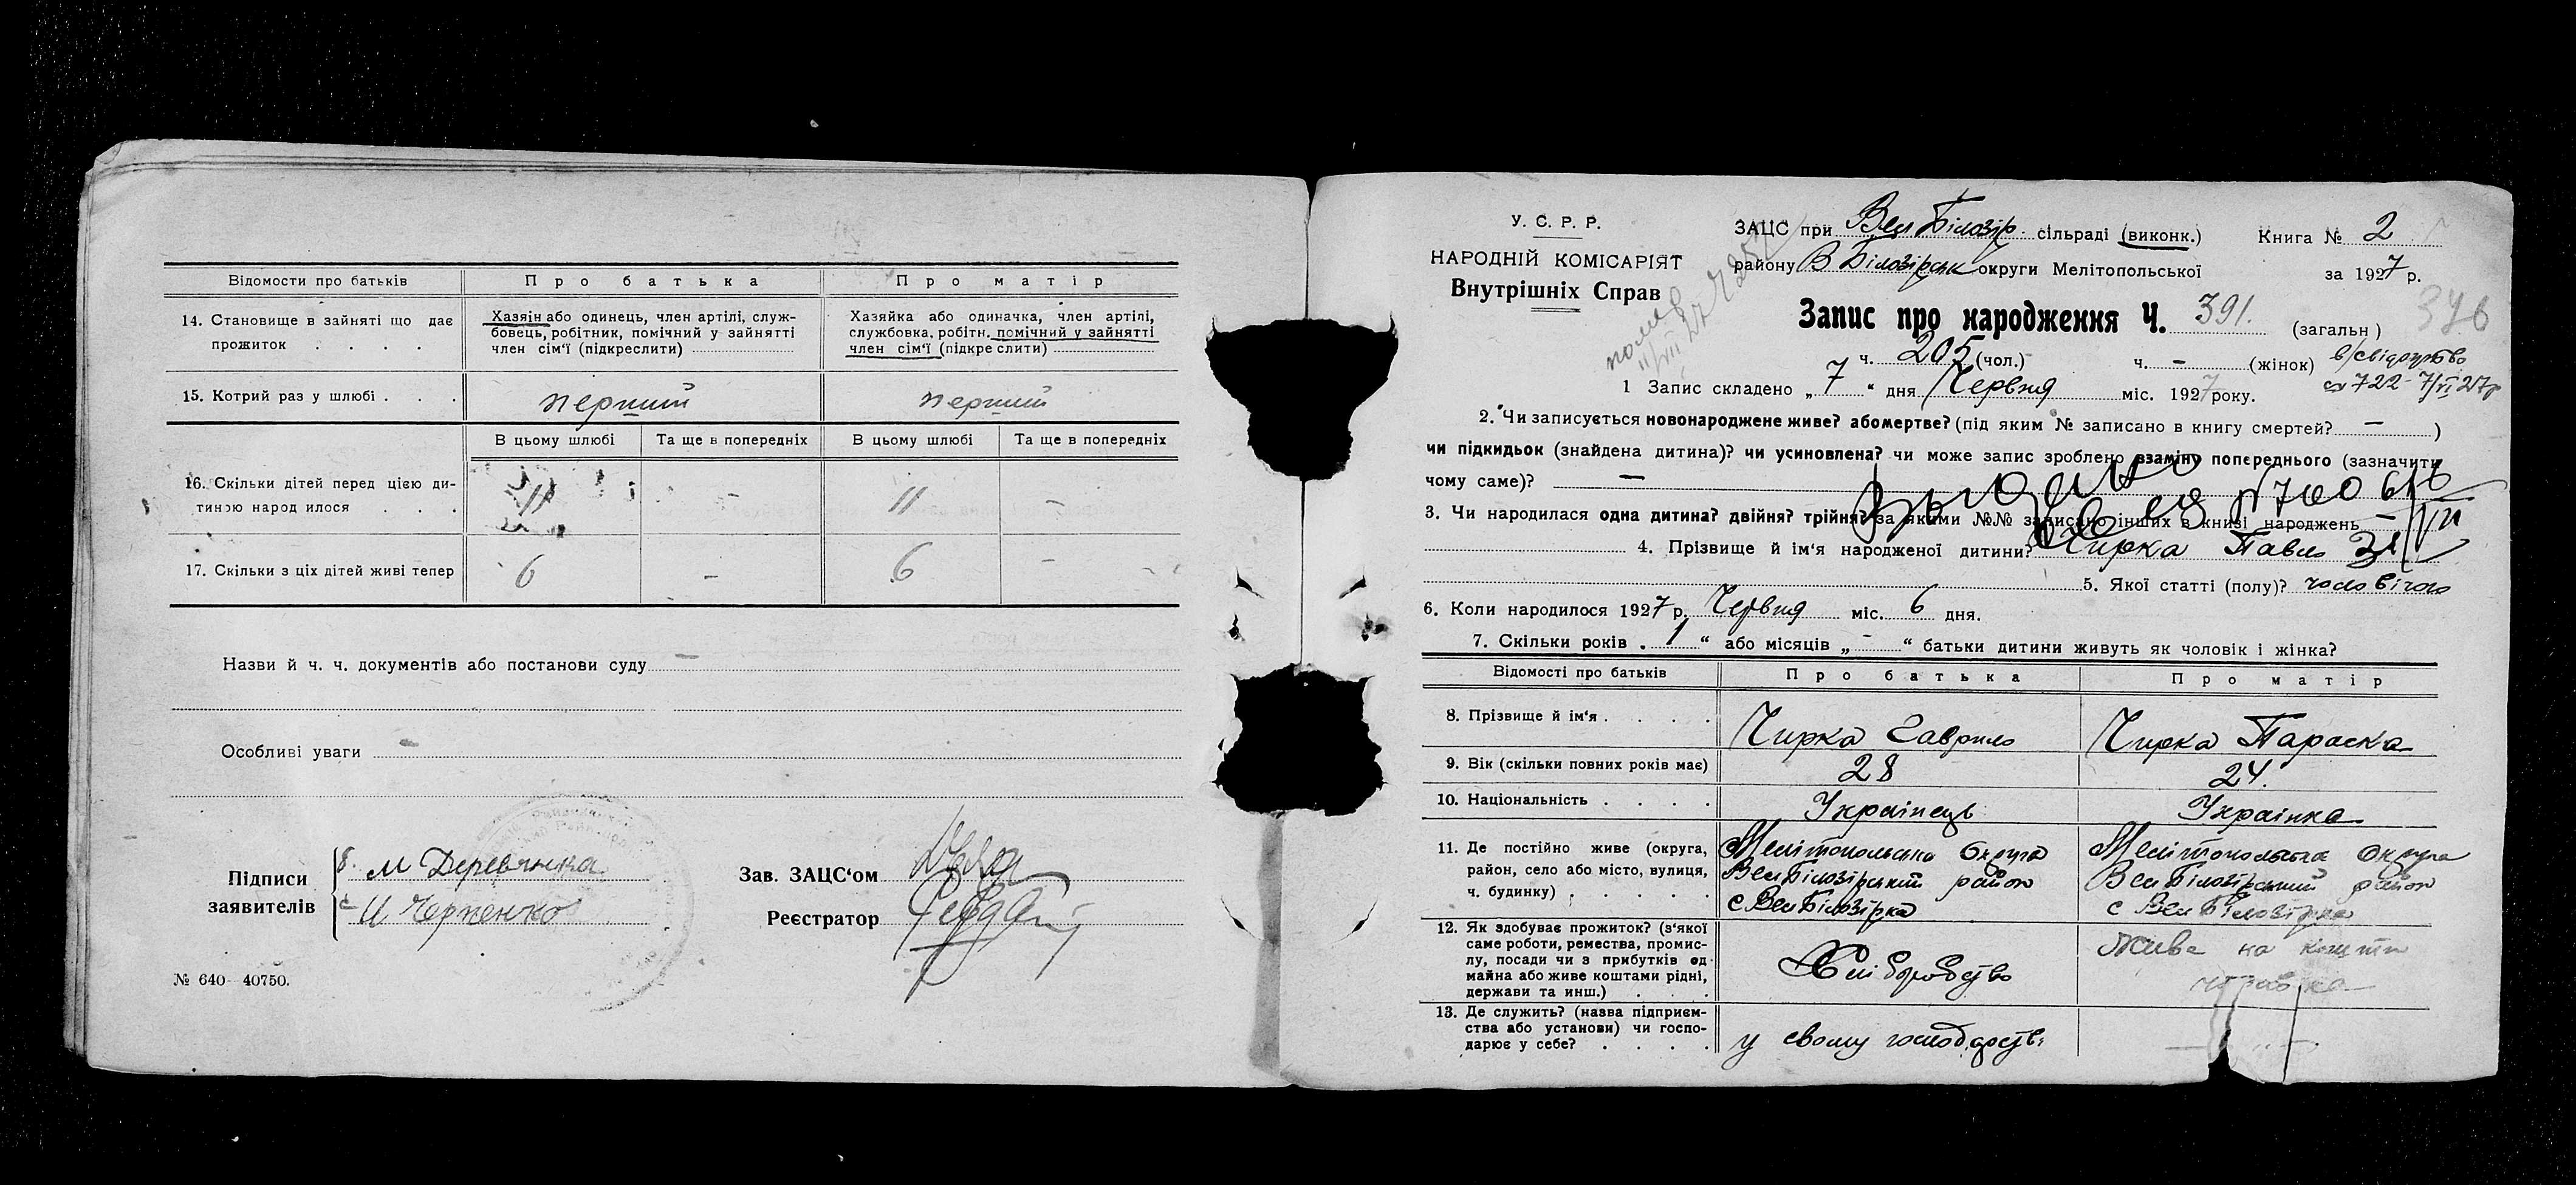 Відомости про батьків
Про батька
Про матір
14. Становище в зайняті що дає прожиток . . . .
Хазяін або одинець, член артілі, служ-
бовець, робітник, помічний у зайнятті
член сім'ї (підкреслити)
Хазяйка або одиначка, член артілі,
службовка, робітн. помічний у зайнятті
член сім'ї (підкреслити)
15. Котрий раз у шлюбі . . .
перший
перший
В цьому шлюбі
Та ще в попередніх
В цьому шлюбі
Та ще в попередніх
16. Скільки дітей перед цією ди-
тиною народилося . . .
11
-
11
-
17. Скільки з ціх дітей живі тепер
6
-
6
-
Назви й ч. ч. документів або постанови суду —
Особливі уваги —
Підписи
заявителів
М Деревянка
Зав. ЗАЦС'ом
Реєстратор
№ 640- 40750.
У. С. Р. Р.
НАРОДНІЙ КОМІСАРІЯТ
Внутрішніх Справ
ЗАЦС при Вел Білозір. сільраді (виконк.)
Книга № 2
району В Білозірськ округи Мелітопольської
за 1927 р.
Запис про народження Ч. 391.
(загальн)
376
ч. 205 (чол.)
ч. — (жінок)
в/свідоцтво
722 7/VI 27р
1 Запис складено „ 7 “ дня Червня міс. 1927 року.
2. Чи записується новонароджене живе? або мертве? (під яким № записано в книгу смертей? — )
чи підкидьок (знайдена дитина)? чи усиновлена? чи може запис зроблено взаміну попереднього (зазначити
чому саме)? —
3. Чи народилася одна дитина? двійня? трійня? за якими №№ записано інших в книзі народжень —
4. Прізвище й ім'я народженої дитини? Чирка Павло
5. Якої статті (полу)? чоловічого
6. Коли народилося 1927 р. Червня міс. 6 дня.
7. Скільки років . 1 “ або місяців „ - “ батьки дитини живуть як чоловік і жінка?
Відомості про батьків
Про батька
Про матір
8. Прізвище й ім'я . . . .
Чирка Гаврило
Чирка Параска
9. Вік (скільки повних років має)
28
24.
10. Національність . . . .
Українець
Українка
11. Де постійно живе (округа,
район, село або місто, вулиця,
ч. будинку) . . . . .
Мелітопольська Округа
Вел Білозірський район
с Вел Білозірка
Мелітопольська Округа
Вел Білозірський район
с Вел Білозірка
12. Як здобуває прожиток? (з'якої
саме роботи, ремества, промис-
лу, посади чи з прибутків од
майна або живе коштами рідні,
держави та инш.) . . .
Хліборобство
Живе на кошти
чоловіка
13. Де служить? (назва підприєм-
ства або установи) чи госпо-
дарює у себе? . . . .
у свому господарстві
—